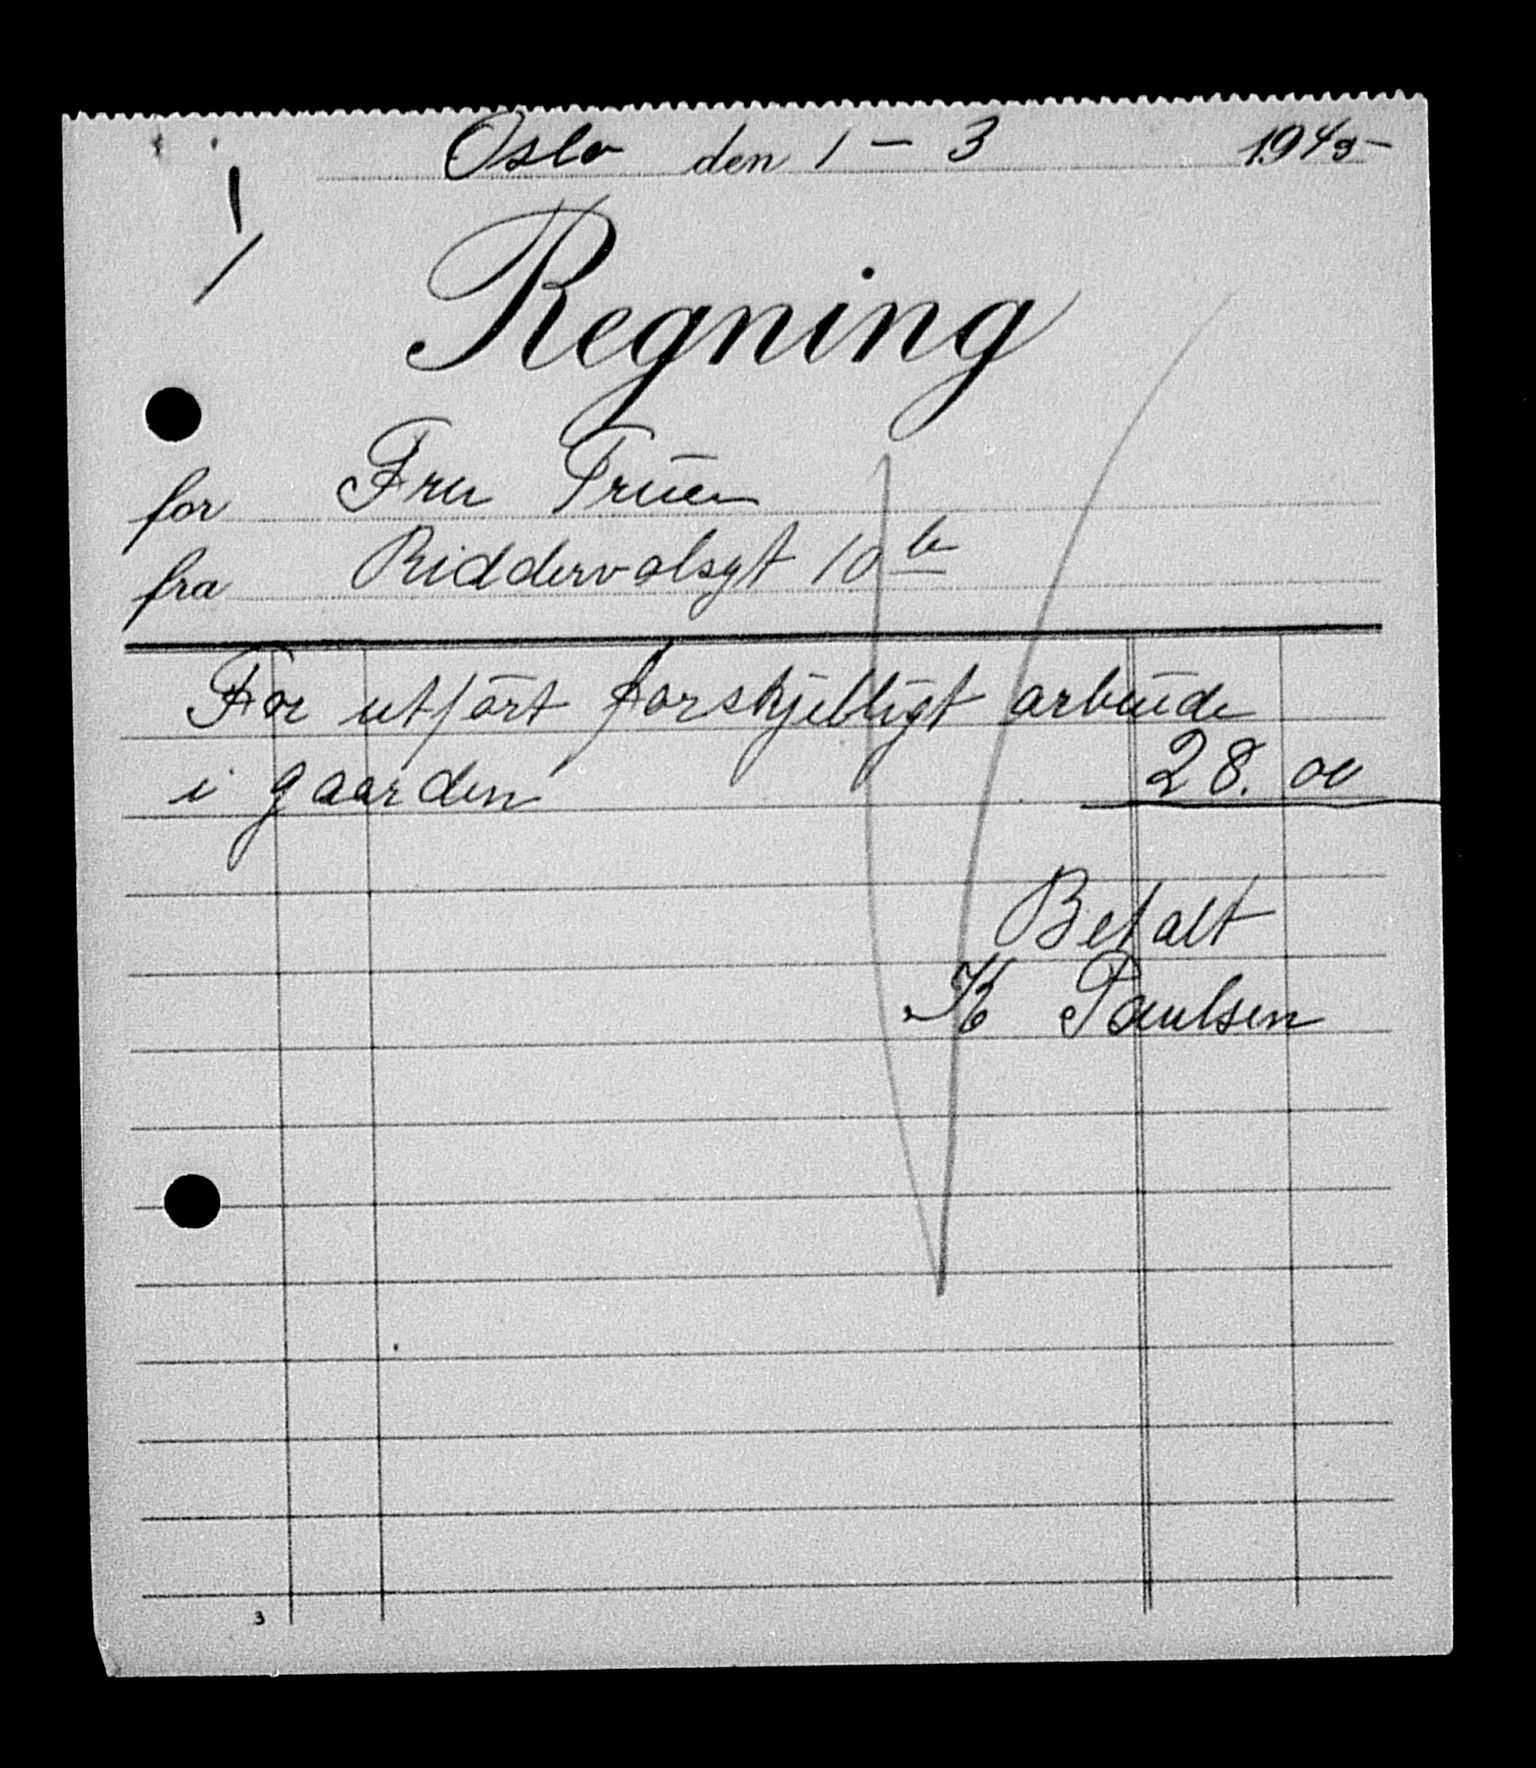 Oslo den 1 - 3 194
Regning
for Fru
fra Riddervolsgt 10 b
For utført forskjelligt arbeide
i gaarden 28.00
Betalt
K Paulsen
3